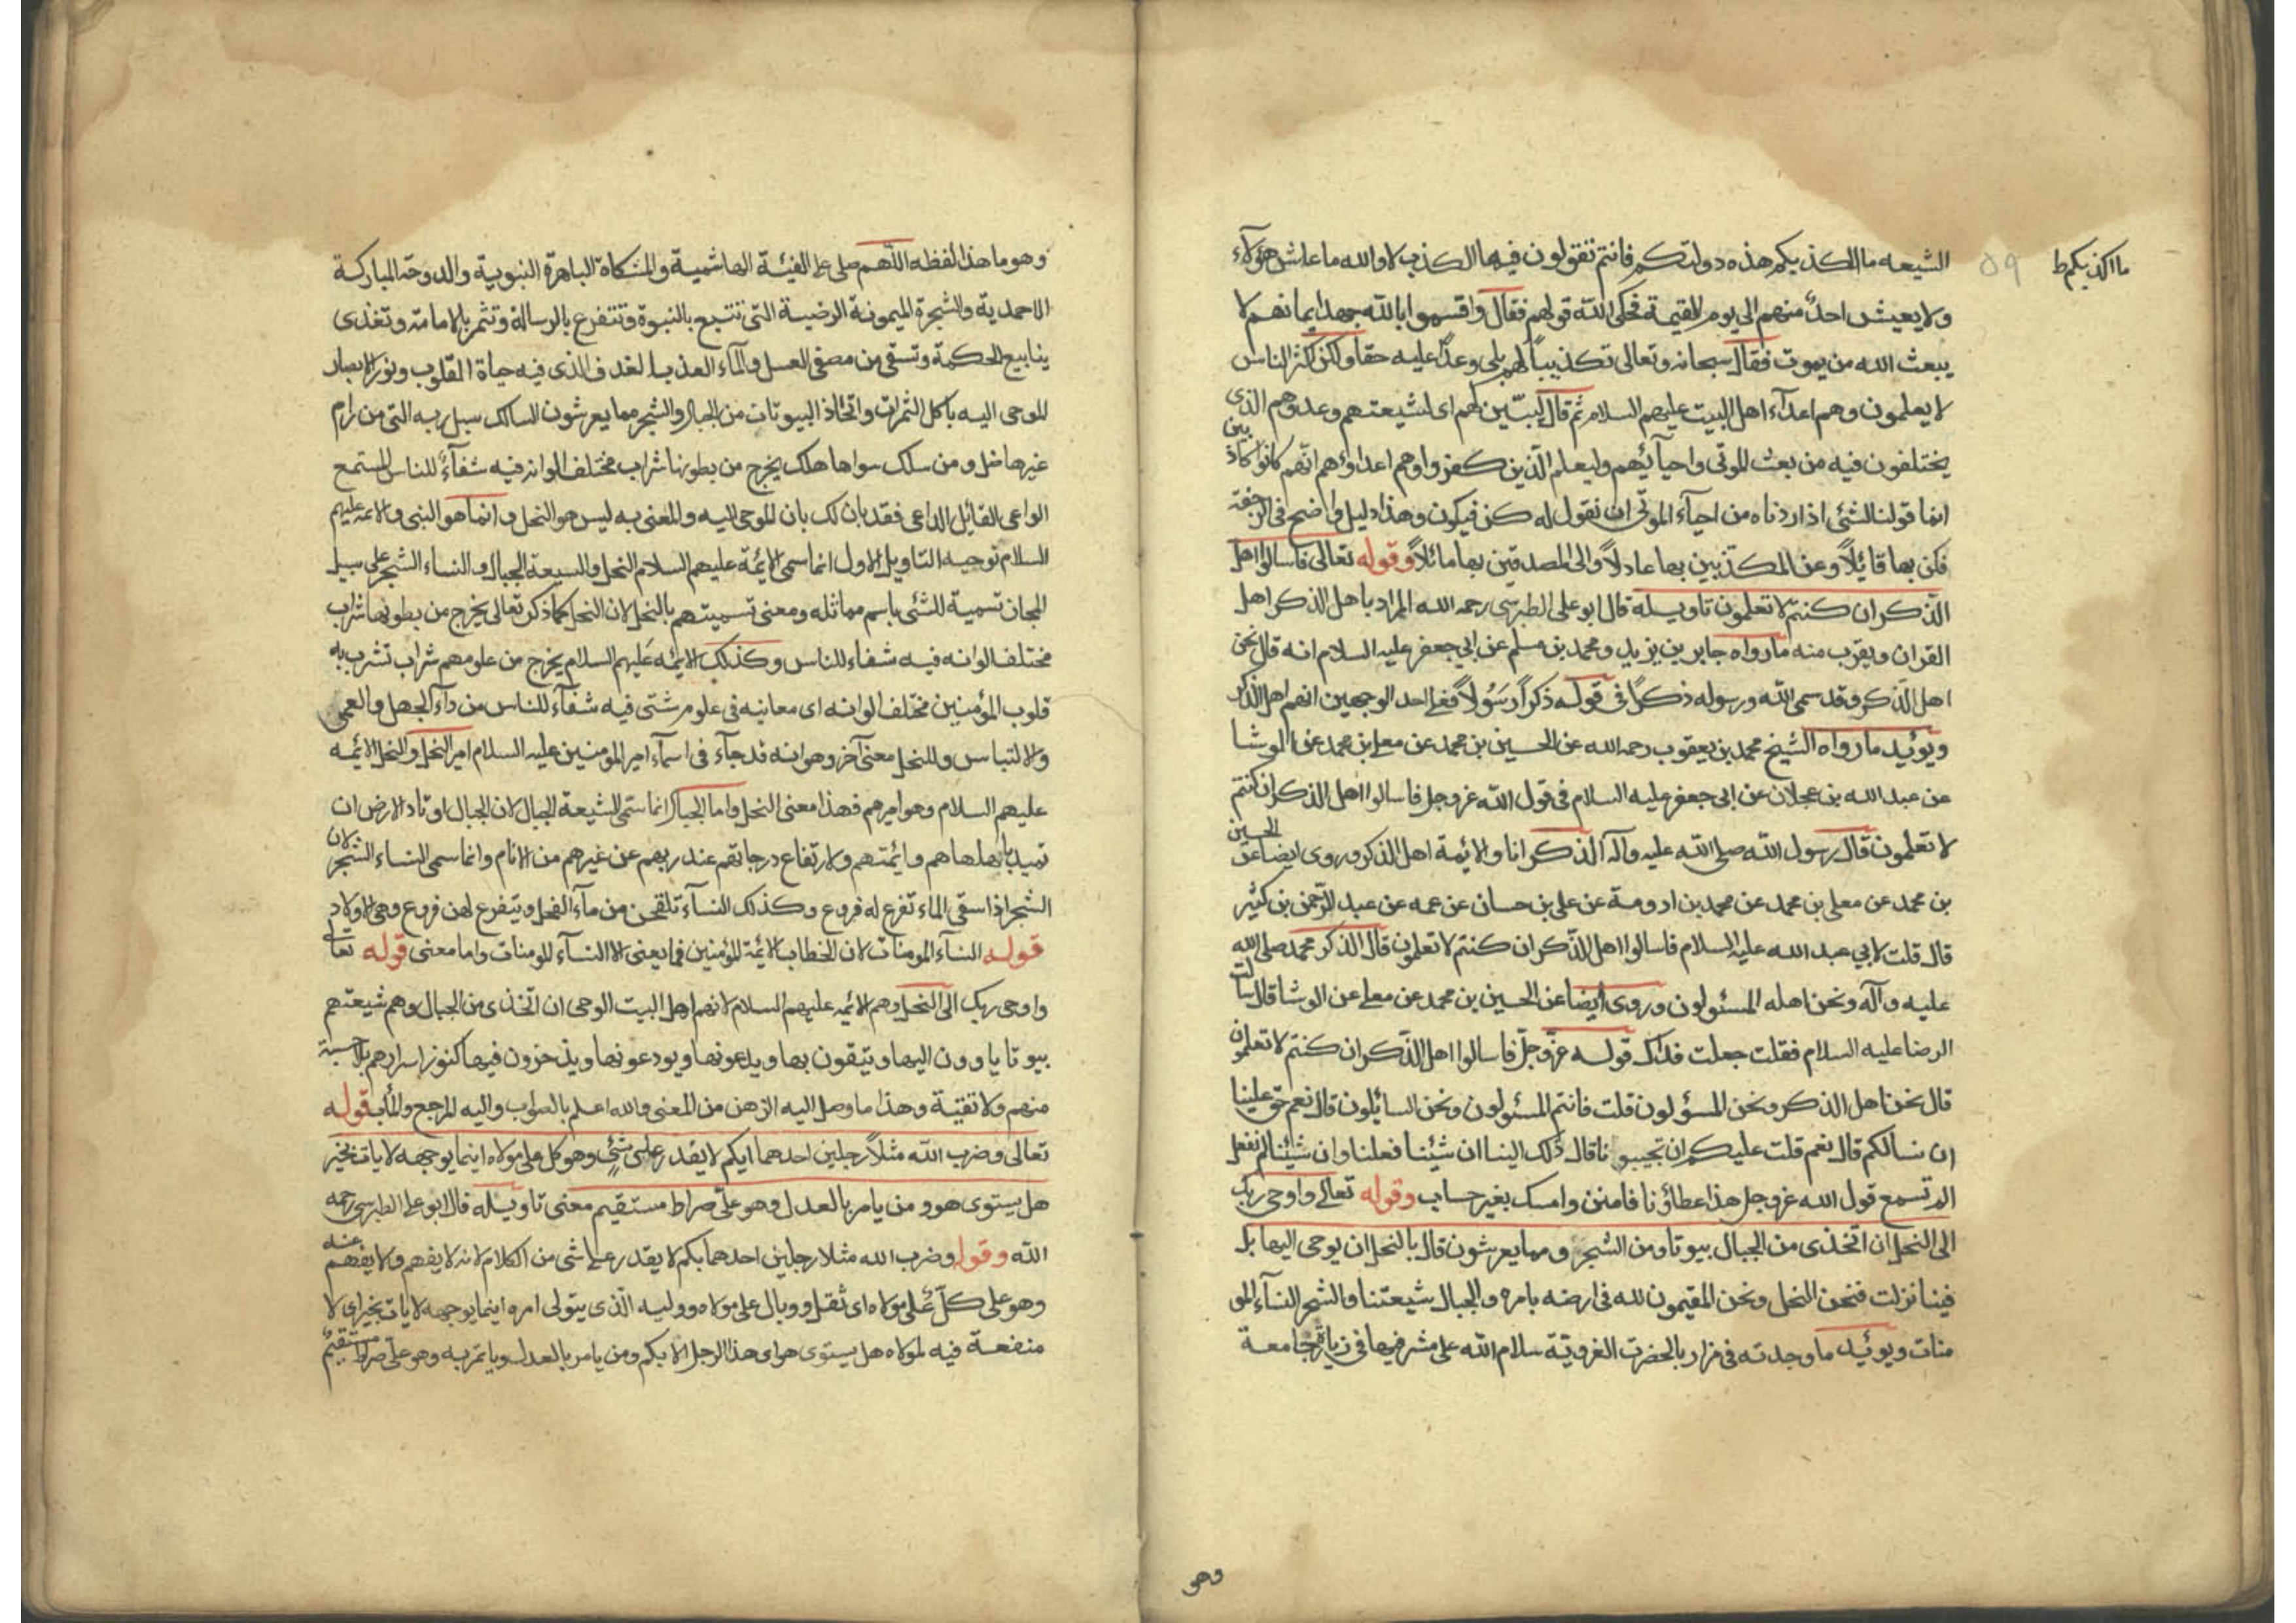 الشيعه ما الكذبكم هذه دولتكم فانتم تقولون فيها الكذب لا والله ما عاش هؤلاء
ما اكذبكم ط
٥٩
ولا يعيش احد منهم الى يوم القيمة فحكى الله قولهم فقال واقسموا بالله جهد ايمانهم لا
يبعث الله من يموت فقال سبحانه وتعالى تكذيباً لهم بلى وعداً عليه حقا ولكن اكثر الناس
لا يعلمون وهم اعدآء اهل البيت عليهم السلام ثم قال ليبيّن لهم اى لشيعتهم وعدوهم الذى
يختلفون فيه من بعث الموتى واحيآئهم وليعلم الّذين كفروا وهم اعداؤهم انهم كانوا كاذبين
انما قولنا لشئ اذا اردناه من احيآء الموتى ان نقول له كن فيكون وهذا دليل واضح فى الرجعة
فكن بها قائلاً وعن المكذبين بها عادلاً والى المصدقين بها مائلاً وقوله تعالى فاسالوا اهل
الذكر ان كنتم لا تعلمون تاويله قال ابو على الطبرسى رحمه الله المراد باهل الذكر اهل
القران ويقرب منه ما رواه جابر بن يزيد ومحمد بن مسلم عن ابي جعفر عليه السلام انه قال نحن
اهل الذكر وقد سمى الله ورسوله ذكراً فى قوله ذكراً رَسُولاً فعلى احد الوجهين انهم اهل الذكر
ويوئيد ما رواه الشيخ محمد بن يعقوب رحمه الله عن الحسين بن محمد عن معلى بن محمد عن الوشا
عن عبد الله بن عجلان عن ابى جعفر عليه السلام فى قول الله عز وجل فاسالوا اهل الذكر ان كنتم
لا تعلمون قال رسول الله صلى الله عليه وآله الذكر انا والائمة اهل الذكر وروى ايضا عن الحسين
بن محمد عن معلى بن محمد عن محمد بن اورمة عن على بن حسان عن عمه عن عبد الرّحمن بن كثير
قال قلت لابي عبد الله عليه السلام فاسالوا اهل الذّكر ان كنتم لا تعلمون قال الذكر محمد صلى الله
عليه وآله ونحن اهله المسئولون وروى ايضا عن الحسين بن محمد عن معلى عن الوشا قال سالت
الرضا عليه السلام فقلت جعلت فداك قوله عزّ وجلّ فاسالوا اهل الذّكر ان كنتم لا تعلمون
قال نحن اهل الذكر ونحن المسؤلون قلت فانتم المسئولون ونحن السائلون قال نعم حق علينا
ان نسالكم قال نعم قلت عليكم ان تجيبونا قال ذلك الينا ان شيئنا فعلنا وان شيئنا لم نفعل
الم تسمع قول الله عز وجل هذا عطاؤنا فامنن وامسك بغير حساب وقوله تعالى واوحى ربك
الى النحل ان اتخذى من الجبال بيوتا ومن الشجر ومما يعرشون قال بالنحل ان يوحى اليها بل
فينا نزلت فنحن النحل ونحن المقيمون لله فى ارضه بامره والجبال شيعتنا والشجر النسآء المو
منات ويوئيد ما وجدته فى مزار بالحضرت الغروية سلام الله على مشرفيها فى زيارة جامعة
وهو
وهو ما هذا لفظه اللهم صل على الفيئة الهاشمية والمشكاة الباهرة النبوية والدوحة المباركة
الاحمدية والشجرة الميمونة الرضية التى تنبع بالنبوة وتتفرع بالرسالة وتثمر بالامامة وتغذى
ينابيع الحكمة وتسقى من مصفى العسل والمآء العذب الغدق الذى فيه حياة القلوب ونور الابصار
الموحى اليه باكل الثمرات واتخاذ البيوتات من الجبال والشجر مما يعرشون السالك سبل ربه التى من رام
غيرها ضل ومن سلك سواها هلك يخرج من بطونها شراب مختلف الوانه فيه شفآء للناس المستمع
الواعى القائل الداعى فقد بان لك بان الموحى اليه والمعنى به ليس هو النحل وانما هو النبى والائمه عليهم
السلام توجيه التاويل الاول انما سمى الائمة عليهم السلام النحل والشيعة الجبال والنساء الشجر على سبيل
المجاز تسمية للشئ باسم مماثله ومعنى تسميتهم بالنحل لان النحل كما ذكر تعالى يخرج من بطونها شراب
مختلف الوانه فيه شفاء للناس وكذلك الائيمه عليهم السلام يخرج من علومهم شراب تشرب به
قلوب المؤمنين مختلف الوانه اى معانيه فى علوم شتى فيه شفآء للناس من دآء الجهل والعمى
والالتباس وللنحل معنى آخر وهو انه قد جآء فى اسمآء امير المومنين عليه السلام امير النحل والنحل الائمه
عليهم السلام وهو اميرهم فهذا معنى النحل واما الجبال انما سمى الشيعة الجبال لان الجبال اوتاد الارض ان
تميد باهلها هم وائمتهم ولارتفاع درجاتهم عند ربهم عن غيرهم من الانام وانما سمى النساء الشجر لان
الشجر اذا سقى الماء تفرع له فروع وكذلك النسآء تلقحن من مآء الفحل ويتفرع لهن فروع وهى الاولاد
قوله النسآء المومنات لان الخطاب لائمة المؤمنين فما يعنى الا النسآء المومنات واما معنى قوله تعالى
واوحى ربك الى النحل وهم الائيمه عليهم السلام لانهم اهل البيت الوحى ان اتخذى من الجبال وهم شيعتهم
بيوتا ياوون اليها ويتيقون بها ويدعونها ويودعونها ويذخرون فيها كنوز اسرارهم بلا خشية
منهم ولا تقيّة وهذا ما وصل اليه الذهن من المعنى والله اعلم بالصواب واليه المرجع والمآب قوله
تعالى وضرب الله مثلاً رجلين احدهما ابكم لا يقدر على شئٍ وهو كل على مولاه اينما يوجهه لا يات بخير
هل يستوى هو ومن يامر بالعدل وهو على صراط مستقيم معنى تاويله قال ابو على الطبرسى رحمه
الله وقوله وضرب الله مثلا رجلين احدهما ابكم لا يقدر على شى من الكلام لانه لا يفهم ولا يفهم عنه
وهو على كلّ على مولاه اى ثقل ووبال على مولاه ووليه الّذى يتولى امره اينما يوجهه لا يات بخير اى لا
منفعة فيه لمولاه هل يستوى هو اى هذا الرجل الابكم ومن يامر بالعدل وياتمر به وهو على صراط مستقيم